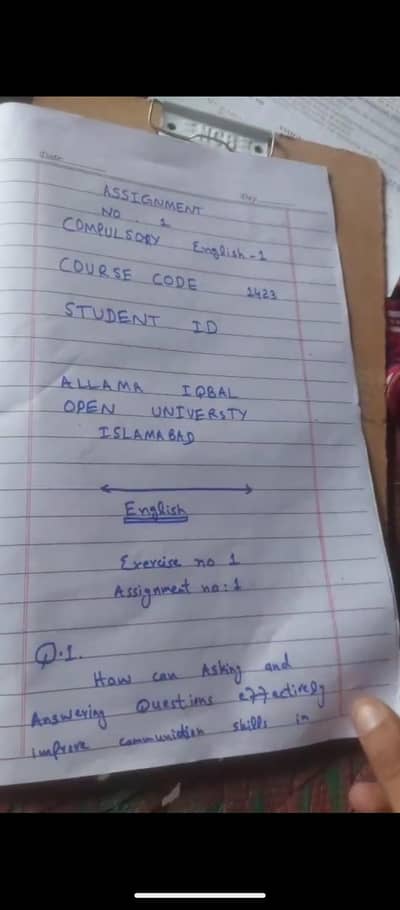 Date
Day
ASSIGNMENT
NO . 1
COMPULSORY English-1
COURSE CODE 1423
STUDENT ID
ALLAMA IQBAL
OPEN UNIVERSTY
ISLAMABAD
English
Exercise no 1
Assignment no: 1
Q.1.
How can Asking and
Answering Questions effectively
improve communiction skills in